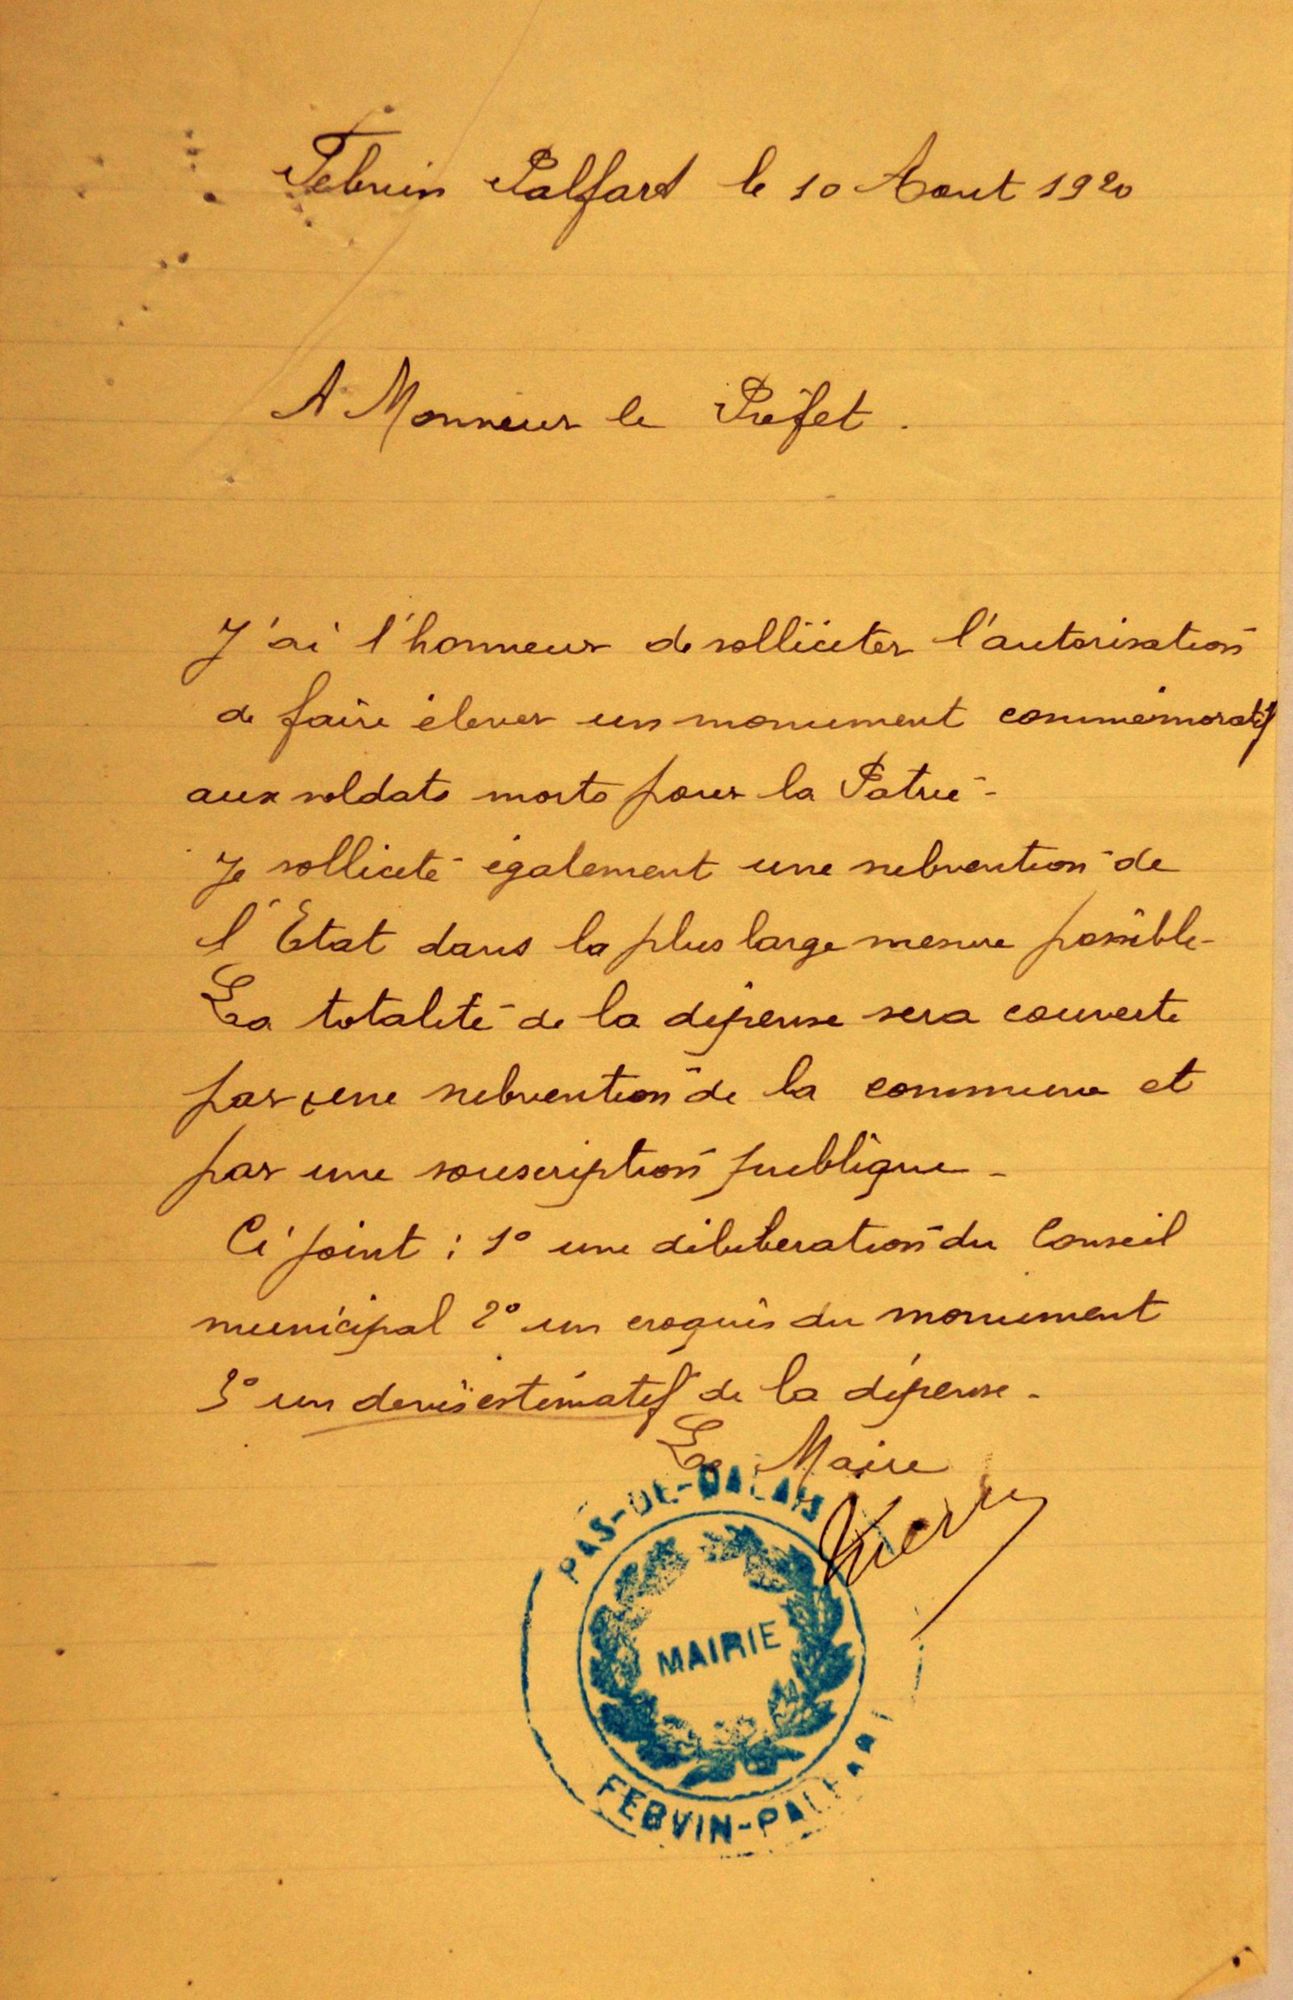 Febvin Palfart le 10 Aout 1920
A Monsieur le Préfet.
J'ai l'honneur de solliciter l'autorisation
de faire élever un monument commémoratif
aux soldats morts pour la Patrie -
Je sollicite également une subvention de
l'Etat dans la plus large mesure possible -
La totalité de la dépense sera couverte
par une subvention de la commune et
par une souscription publique -
Ci joint : 1° une délibération du Conseil
municipal 2° un croquis du monument
3° un devis estimatif de la dépense -
Le Maire
PAS-DE-CALAIS
MAIRIE
FEBVIN-PALFART